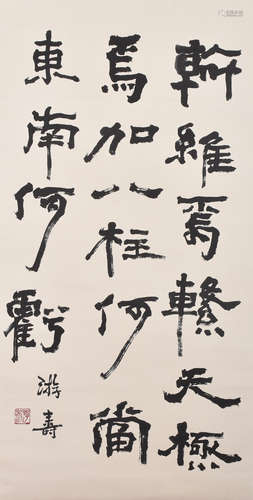 斡維焉繫天極
焉加八柱何當
東南何虧
游壽